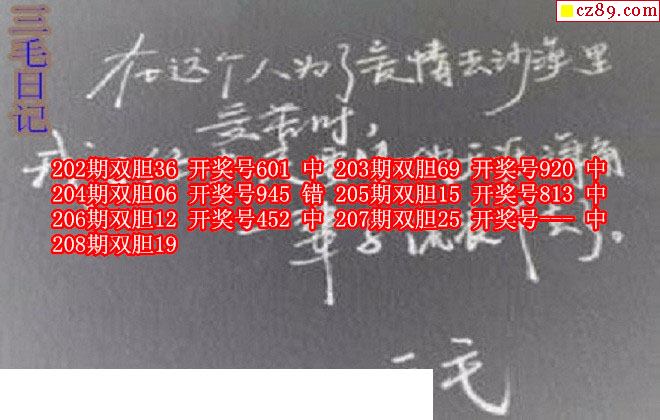 cz89.com
三毛日记
在这个人为了爱情去沙漠里
受苦时，
我
202期双胆36 开奖号601 中 203期双胆69 开奖号920 中
204期双胆06 开奖号945 错 205期双胆15 开奖号813 中
206期双胆12 开奖号452 中 207期双胆25 开奖号--- 中
208期双胆19
三毛